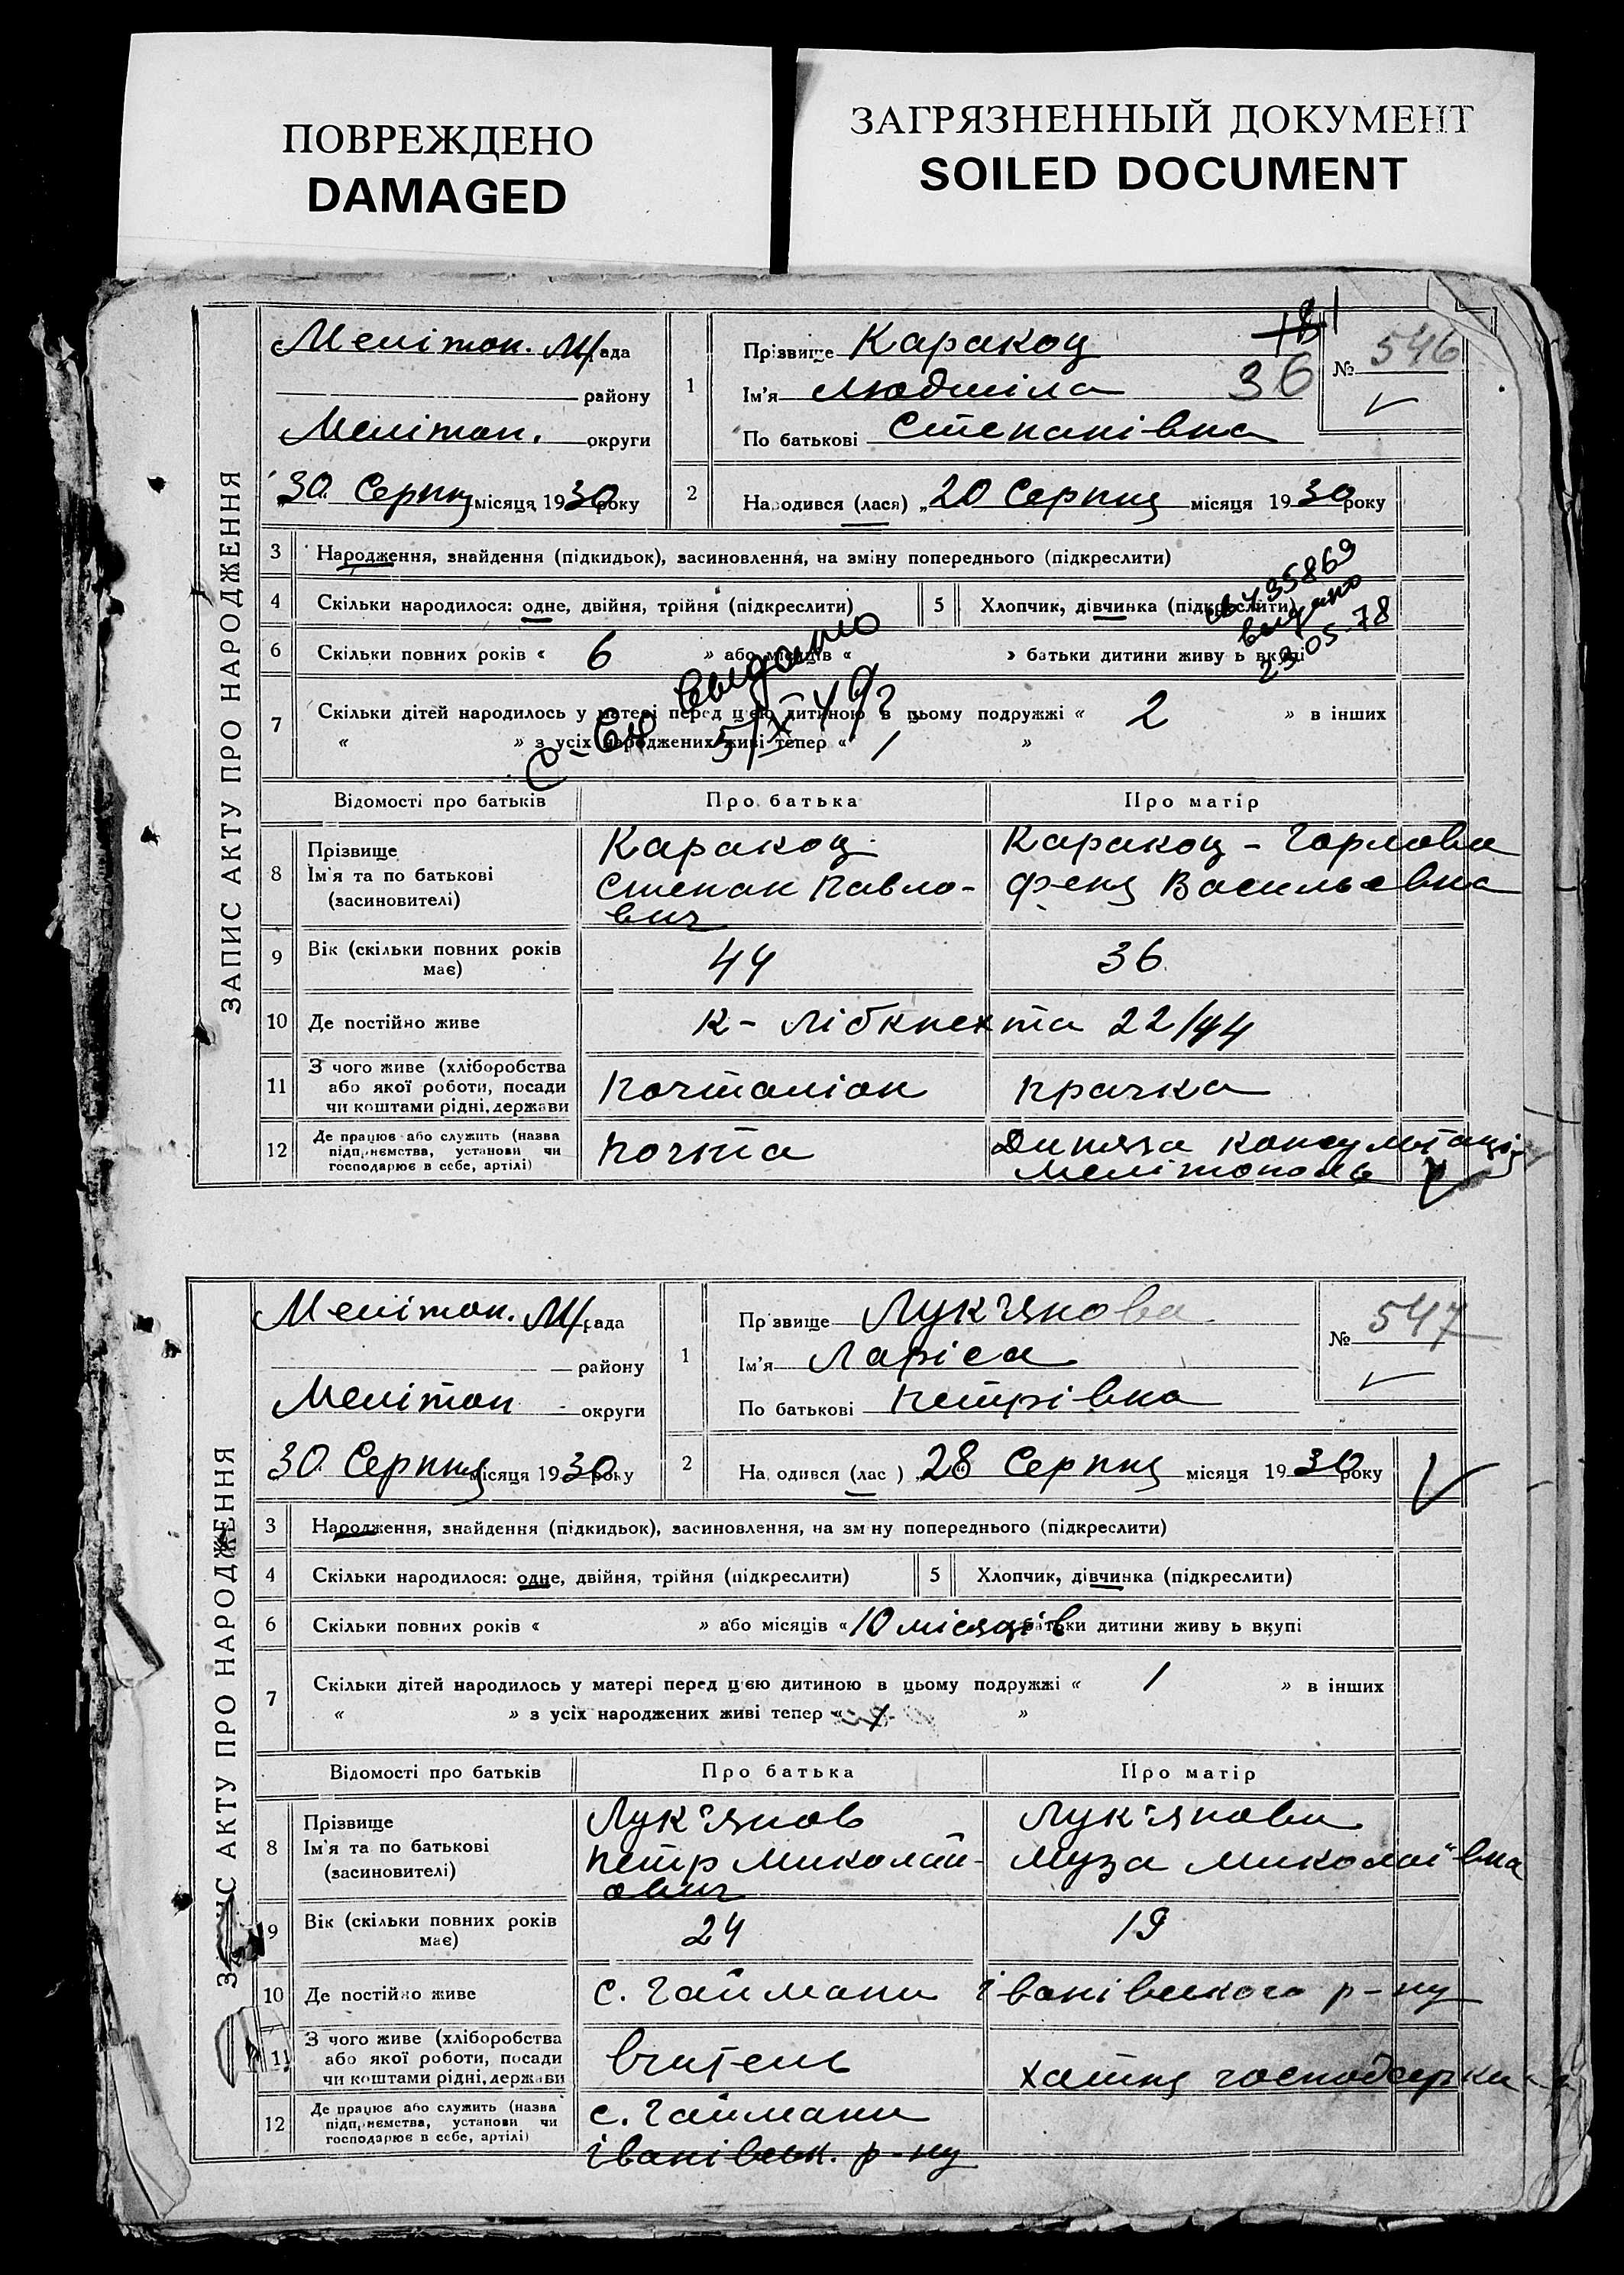 ПОВРЕЖДЕНО
DAMAGED
ЗАГРЯЗНЕННЫЙ ДОКУМЕНТ
SOILED DOCUMENT
ЗАПИС АКТУ ПРО НАРОДЖЕННЯ
Мелітоп. М/рада
району
Мелітоп. округи
30 Серпня місяця 1930 року
1
Прізвище Каракоц
Ім'я Людміла 36
По батькові Степанівна
№ 546
2 Народився (лася) „20 Серпня місяця 1930 року
3 Народження, знайдення (підкидьок), засиновлення, на зміну попереднього (підкреслити)
4 Скільки народилося: одне, двійня, трійня (підкреслити) 5 Хлопчик, дівчинка (підкреслити)
435869
видано
23 05-78
6 Скільки повних років « 6 » або місяців « » батьки дитини живуть вкупі
7 Скільки дітей народилось у матері перед цією дитиною в цьому подружжі « 2 » в інших
« » з усіх народжених живі тепер « 1 »
видано
Відомості про батьків Про батька Про матір
8 Прізвище
Ім'я та по батькові
(засиновителі)
Каракоц
Степан Павло-
вич
Каракоц - Горлова
Феня Васильевна
9 Вік (скільки повних років має) 44 36
10 Де постійно живе К- Лібкнехта 22/44
11 З чого живе (хліборобства
або якої роботи, посади
чи коштами рідні, держави
Почталіон прачка
12 Де працює або служить (назва
підприємства, установи чи
господарює в себе, артілі)
Почта
консультація
Мелітополь
ЗАПИС АКТУ ПРО НАРОДЖЕННЯ
Мелітоп. М/рада
району
Мелітоп округи
30 Серпня місяця 1930 року
1
Прізвище Лук'янова
Ім'я Ларіса
По батькові Петрівна
№ 547
2 Народився (лас ) „28 Серпня місяця 1930 року
3 Народження, знайдення (підкидьок), засиновлення, на зміну попереднього (підкреслити)
4 Скільки народилося: одне, двійня, трійня (підкреслити) 5 Хлопчик, дівчинка (підкреслити)
6 Скільки повних років « » або місяців «10 місяців батьки дитини живуть вкупі
7 Скільки дітей народилось у матері перед цією дитиною в цьому подружжі « 1 » в інших
« » з усіх народжених живі тепер « 1 »
Відомості про батьків Про батька Про матір
8 Прізвище
Ім'я та по батькові
(засиновителі)
Лук'янов
Петр Миколай-
ович
Лук'янова
Муза Миколаївна
9 Вік (скільки повних років має) 24 19
10 Де постійно живе с. Гаймани Іванівського р-ну
11 З чого живе (хліборобства
або якої роботи, посади
чи коштами рідні, держави
вчитель хатня господарка
12 Де працює або служить (назва
підприємства, установи чи
господарює в себе, артілі)
с. Гаймани
Іванівськ. р-ну